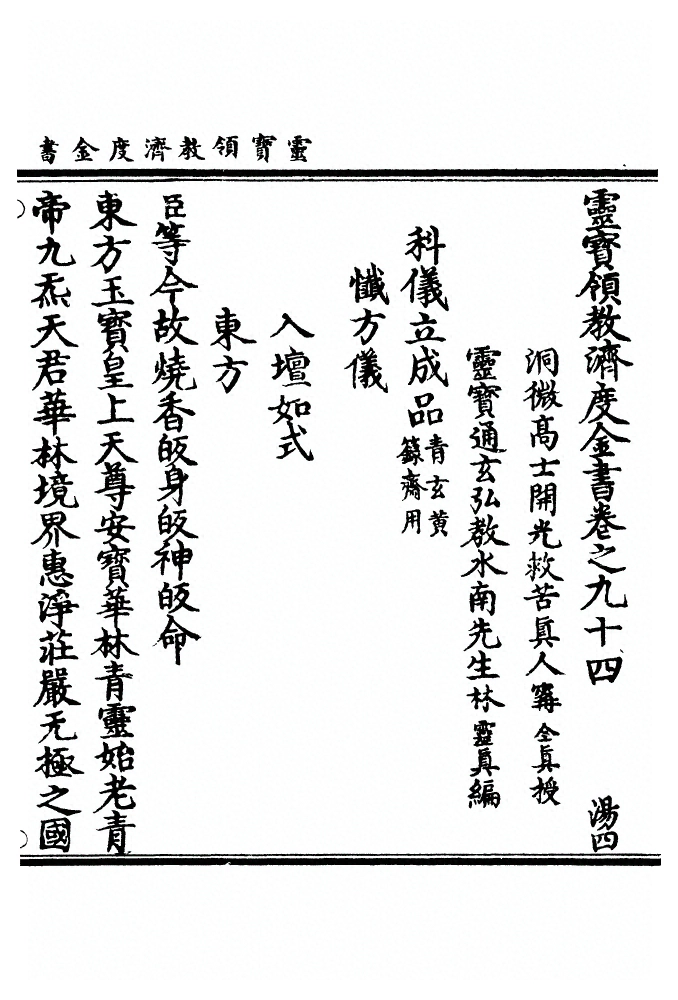 靈寶領教濟度金書
靈寶領教濟度金書卷之九十四 湯四
洞微髙士開光救苦眞人甯全眞授
靈寶通玄弘教水南先生林靈眞編
科儀立成品青玄黄籙齋用
懺方儀
入壇如式
東方
臣等今故燒香皈身皈神皈命
東方玉寶皇上天尊安寶華林青靈始老青
帝九炁天君華林境界惠淨莊嚴无極之國